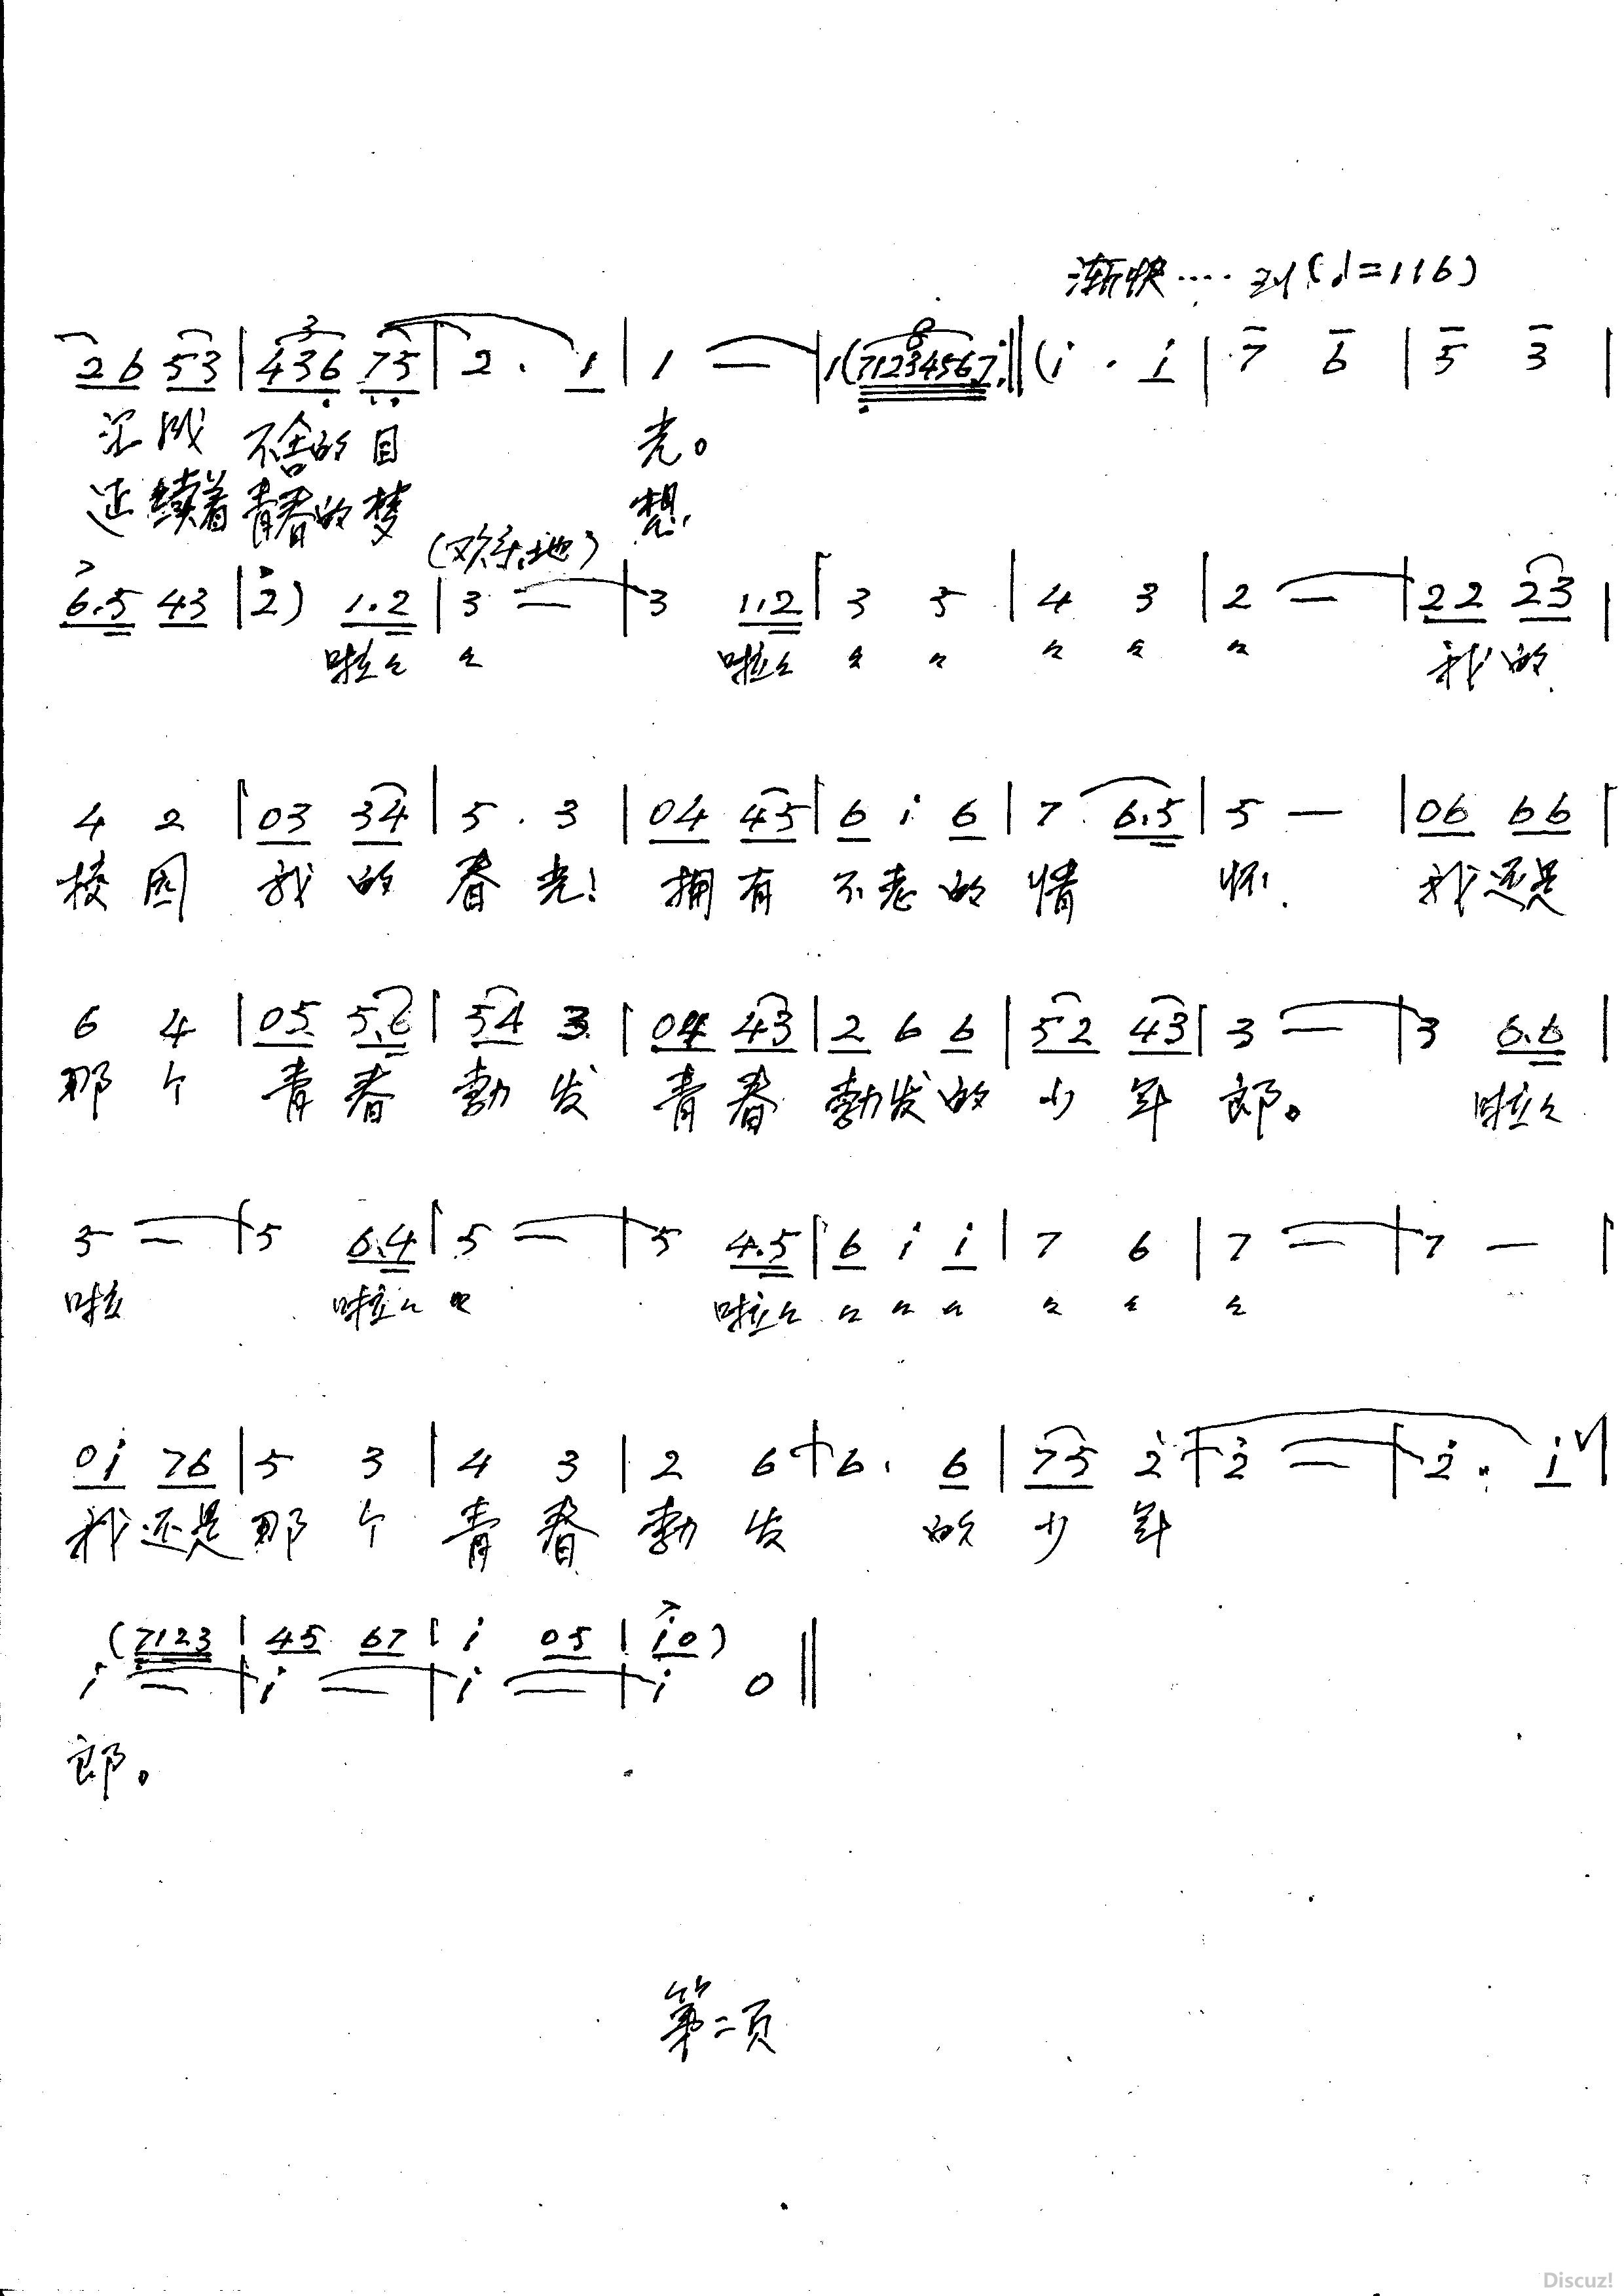 渐快····到(♩=116)
2 6 5 3 | 4 3 6 7 5 | 2 . 1 | 1 — | 1 (7 1 2 3 4 5 6 7 :‖ (i · i | 7 6 | 5 3 |
深 浅 不舍的目 光。
延续着青春的梦 想,
(欢乐地)
6.5 43 | 2) 1.2 | 3 — | 3 1.2 | 3 5 | 4 3 | 2 — | 22 23 |
啦々 々 啦々 々 々 々 々 々 我的
4 2 | 03 34 | 5 . 3 | 04 45 | 6 i 6 | 7 6.5 | 5 — | 06 66 |
校园 我的春光! 拥有不老的情怀! 我还是
6 4 | 05 5.6 | 54 3 | 04 43 | 2 6 6 | 52 43 | 3 — | 3 6.6 |
那个青春勃发青春勃发的少年郎。 啦々
5 — | 5 6.4 | 5 — | 5 4.5 | 6 i i | 7 6 | 7 — | 7 — |
啦 啦々 々 啦々 々 々 々 々 々 々
0i 76 | 5 3 | 4 3 | 2 6 | 6. 6 | 75 2 | 2 — | 2. i |
我还是那个青春勃发 的少年
(7123 | 45 67 | i 05 | i0)
i — | i — | i — | i 0 ‖
郎。
第二页
Discuz!